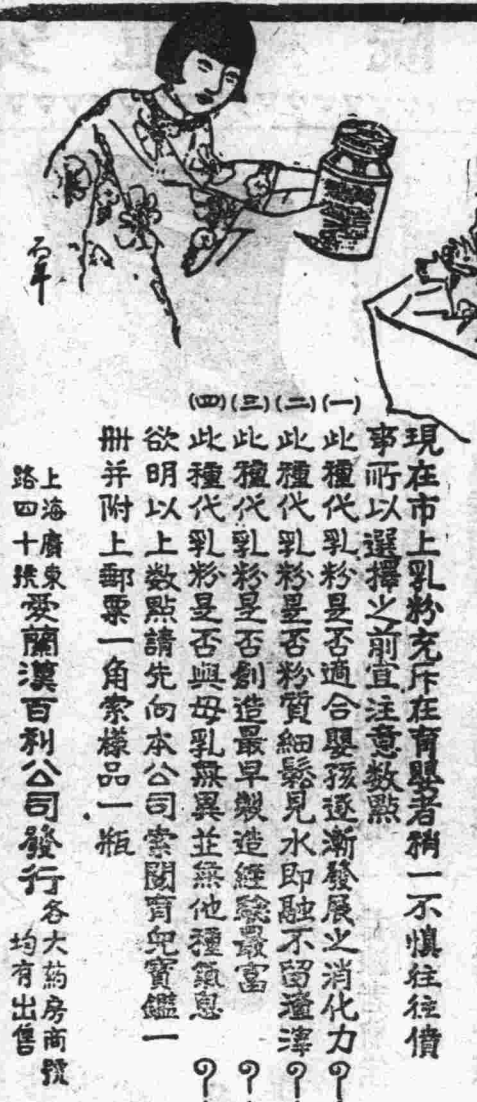 現在市上乳粉充斥在育嬰者稍一不慎往往僨
事所以選擇之前宜注意数點
(一)此種代乳粉是否適合嬰孩逐漸發展之消化力?
(二)此種代乳粉是否粉質細鬆見水即融不留渣滓?
(三)此種代乳粉是否創造最早製造經驗最富?
(四)此種代乳粉是否與母乳無異並無他種氣息?
欲明以上数點請先向本公司索閱育兒寶鑑一
册并附上郵票一角索樣品一瓶
上海廣東路四十號
愛蘭漢百利公司發行
各大葯房商號均有出售